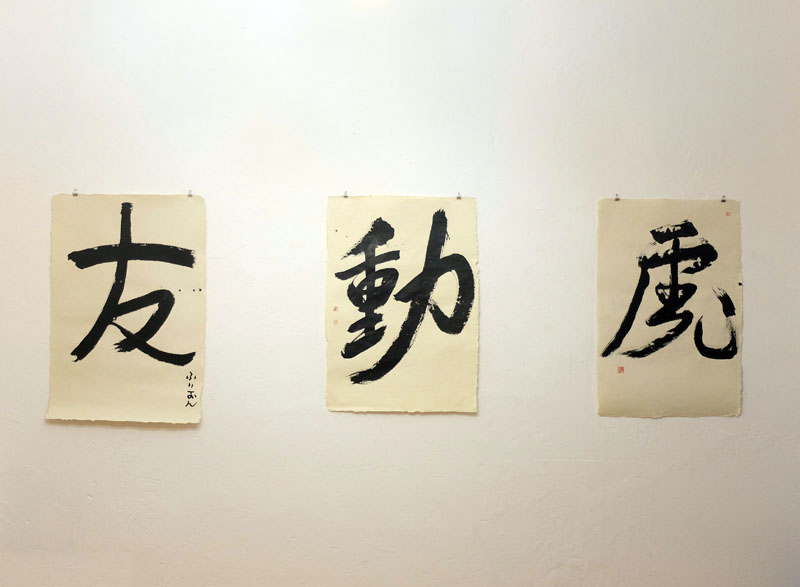 友
ふりおん
動
虎